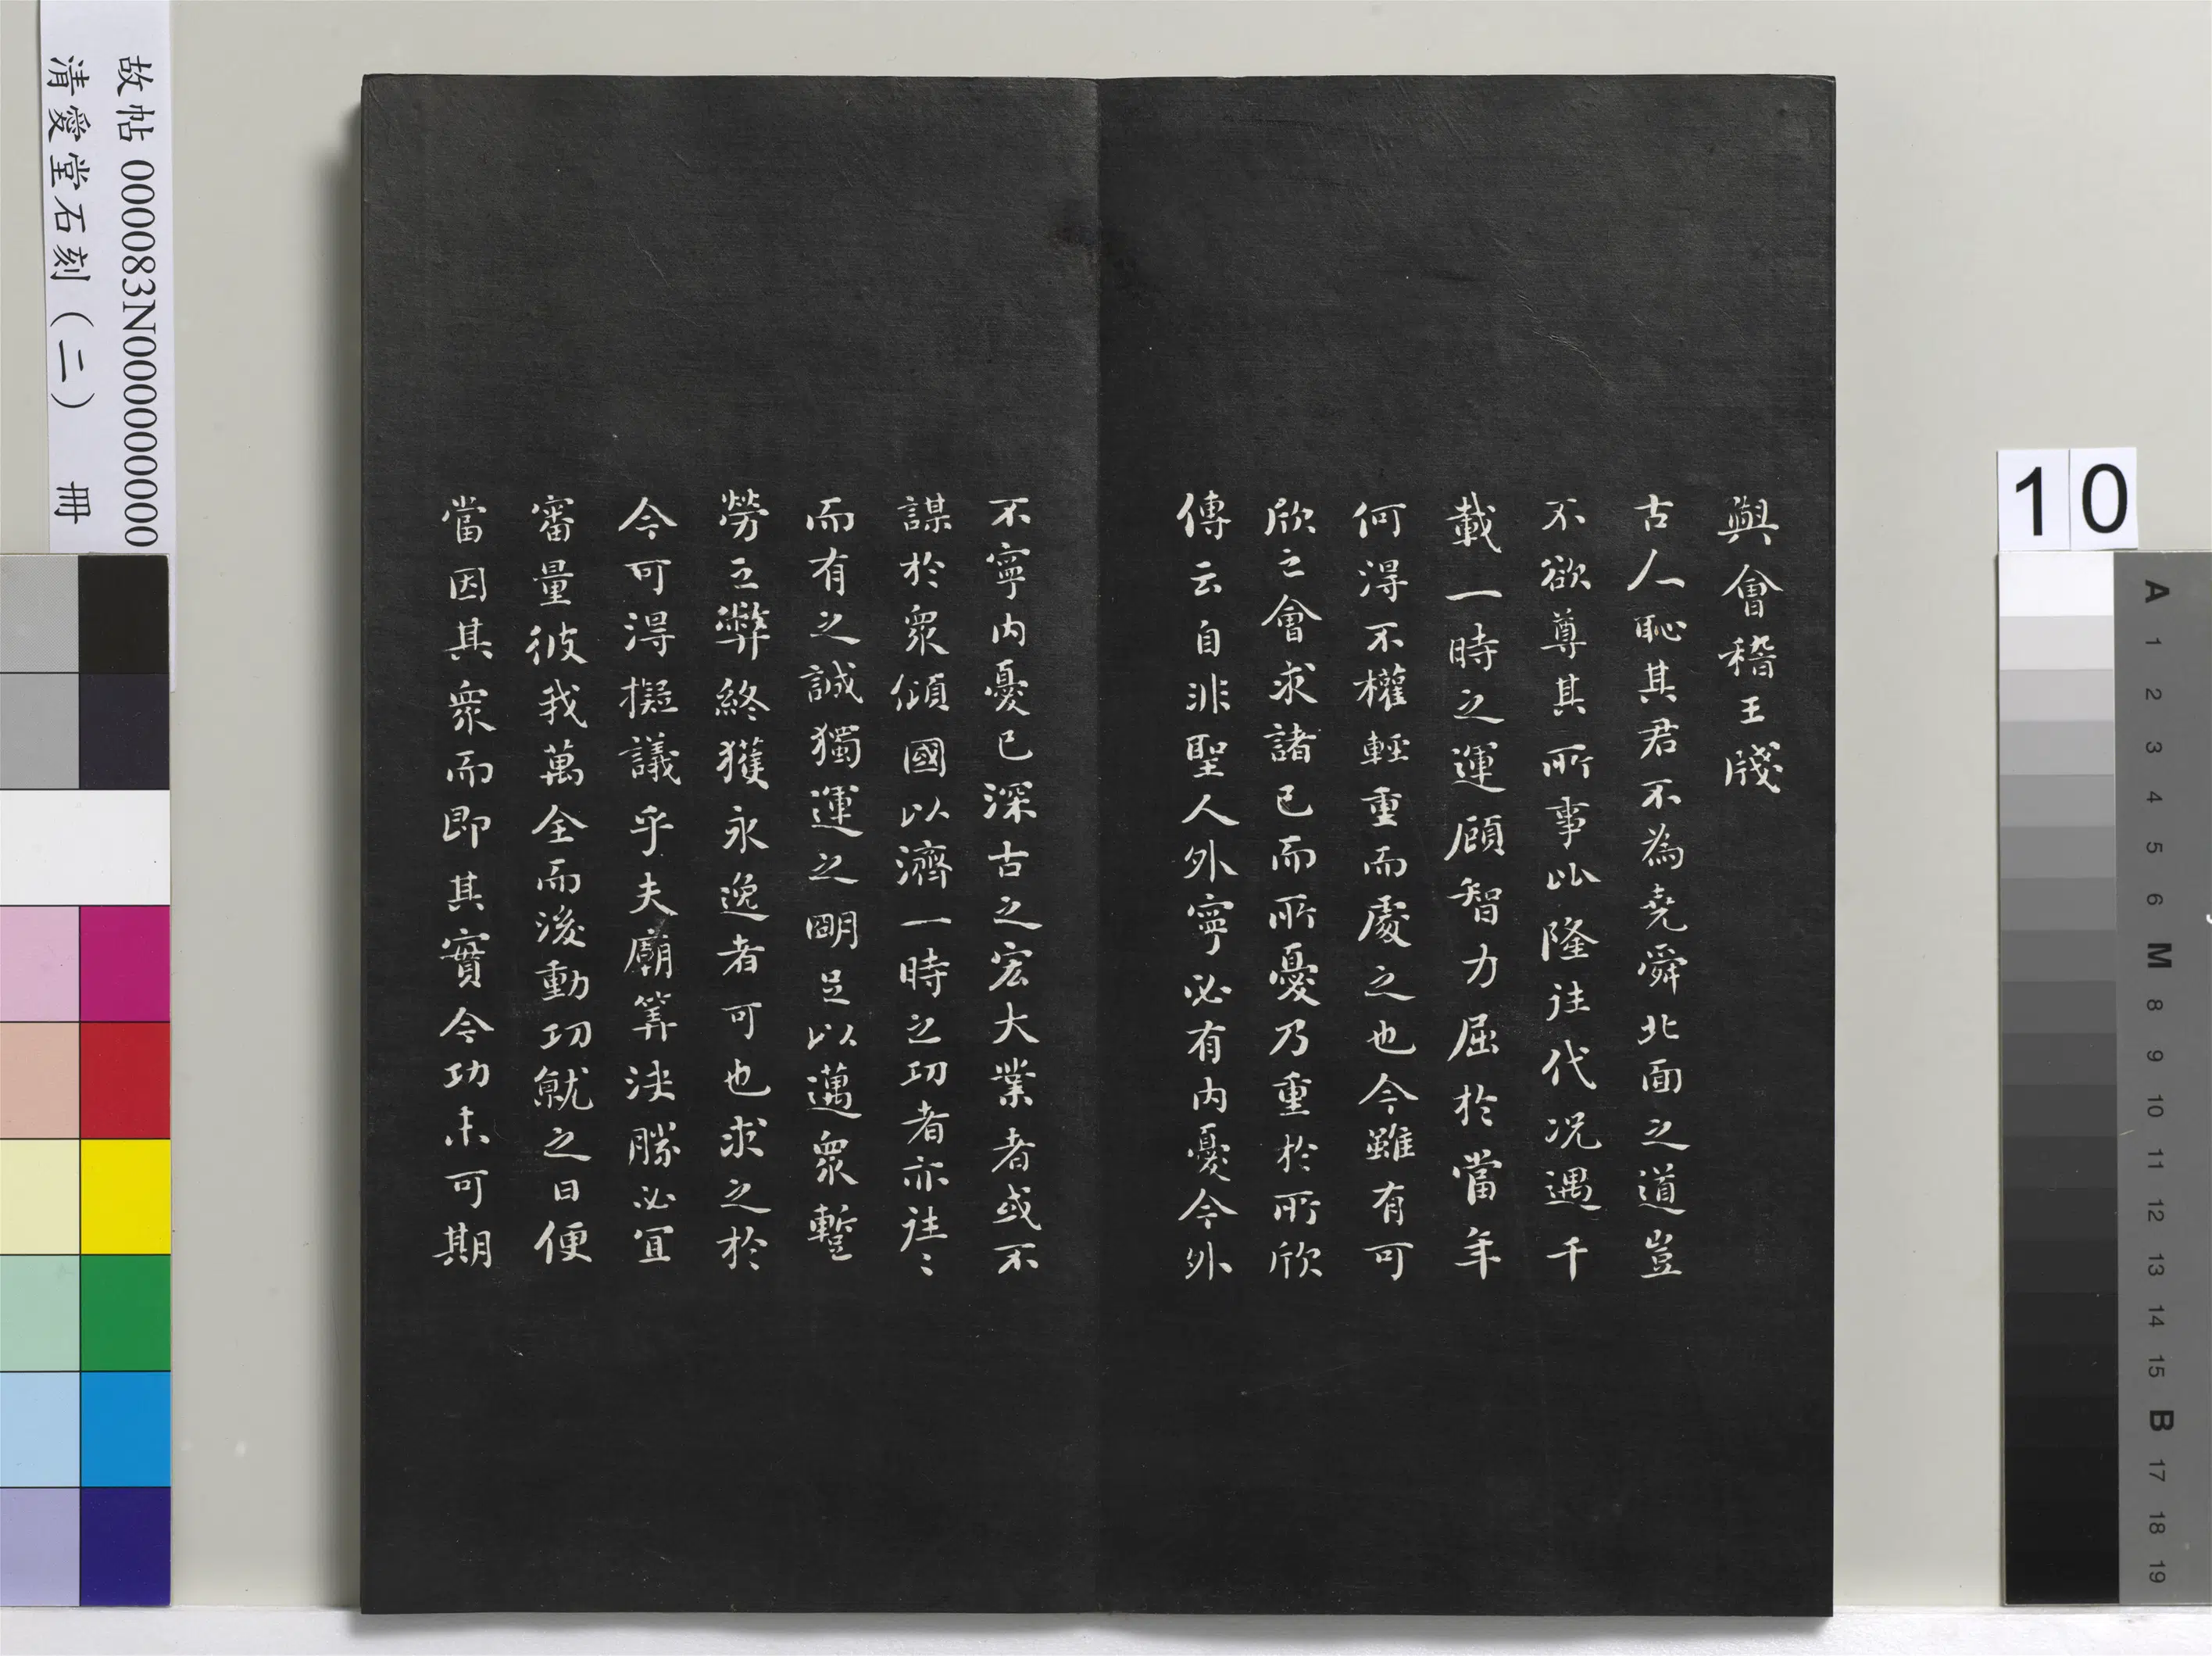 與會稽王牋
古人恥其君不為堯舜北面之道豈
不欲尊其所事比隆往代況遇千
載一時之運顧智力屈於當年
何得不權輕重而處之也今雖有可
欣之會求諸己而所憂乃重於所欣
傳云自非聖人外寧必有内憂今外
不寧内憂已深古之宏大業者或不
謀於衆傾國以濟一時之功者亦往〻
而有之誠獨運之明足以邁衆蹔
勞之弊終獲永逸者可也求之於
今可得擬議乎夫廟筭決勝必宜
審量彼我萬全而後動功就之日便
當因其衆而即其實令功未可期
故帖 000083N000000000
清愛堂石刻（二） 冊
10
A
1
2
3
4
5
6
M
8
9
10
11
12
13
14
15
B
17
18
19